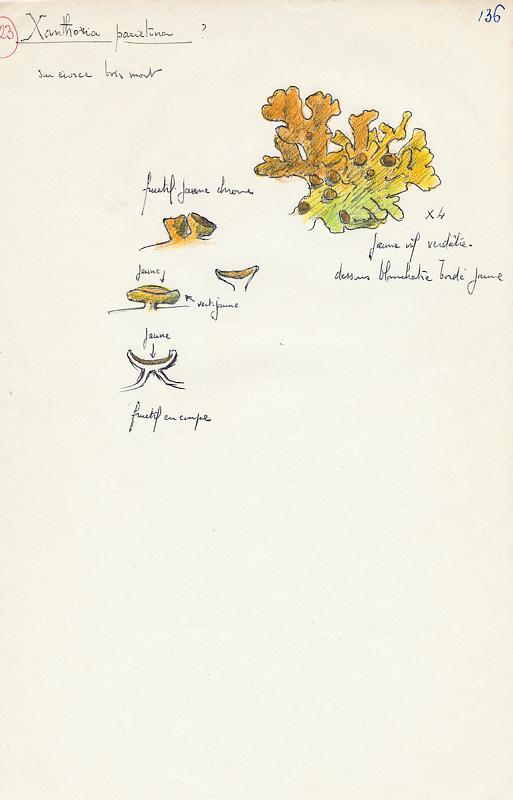 136
23 Xanthoria parietina ?
sur écorce bois mort
fructif. jaune chrome
x4
jaune vif verdâtre.
dessous blanchâtre bordé jaune
jaune
vert-jaune
jaune
fructif en coupe